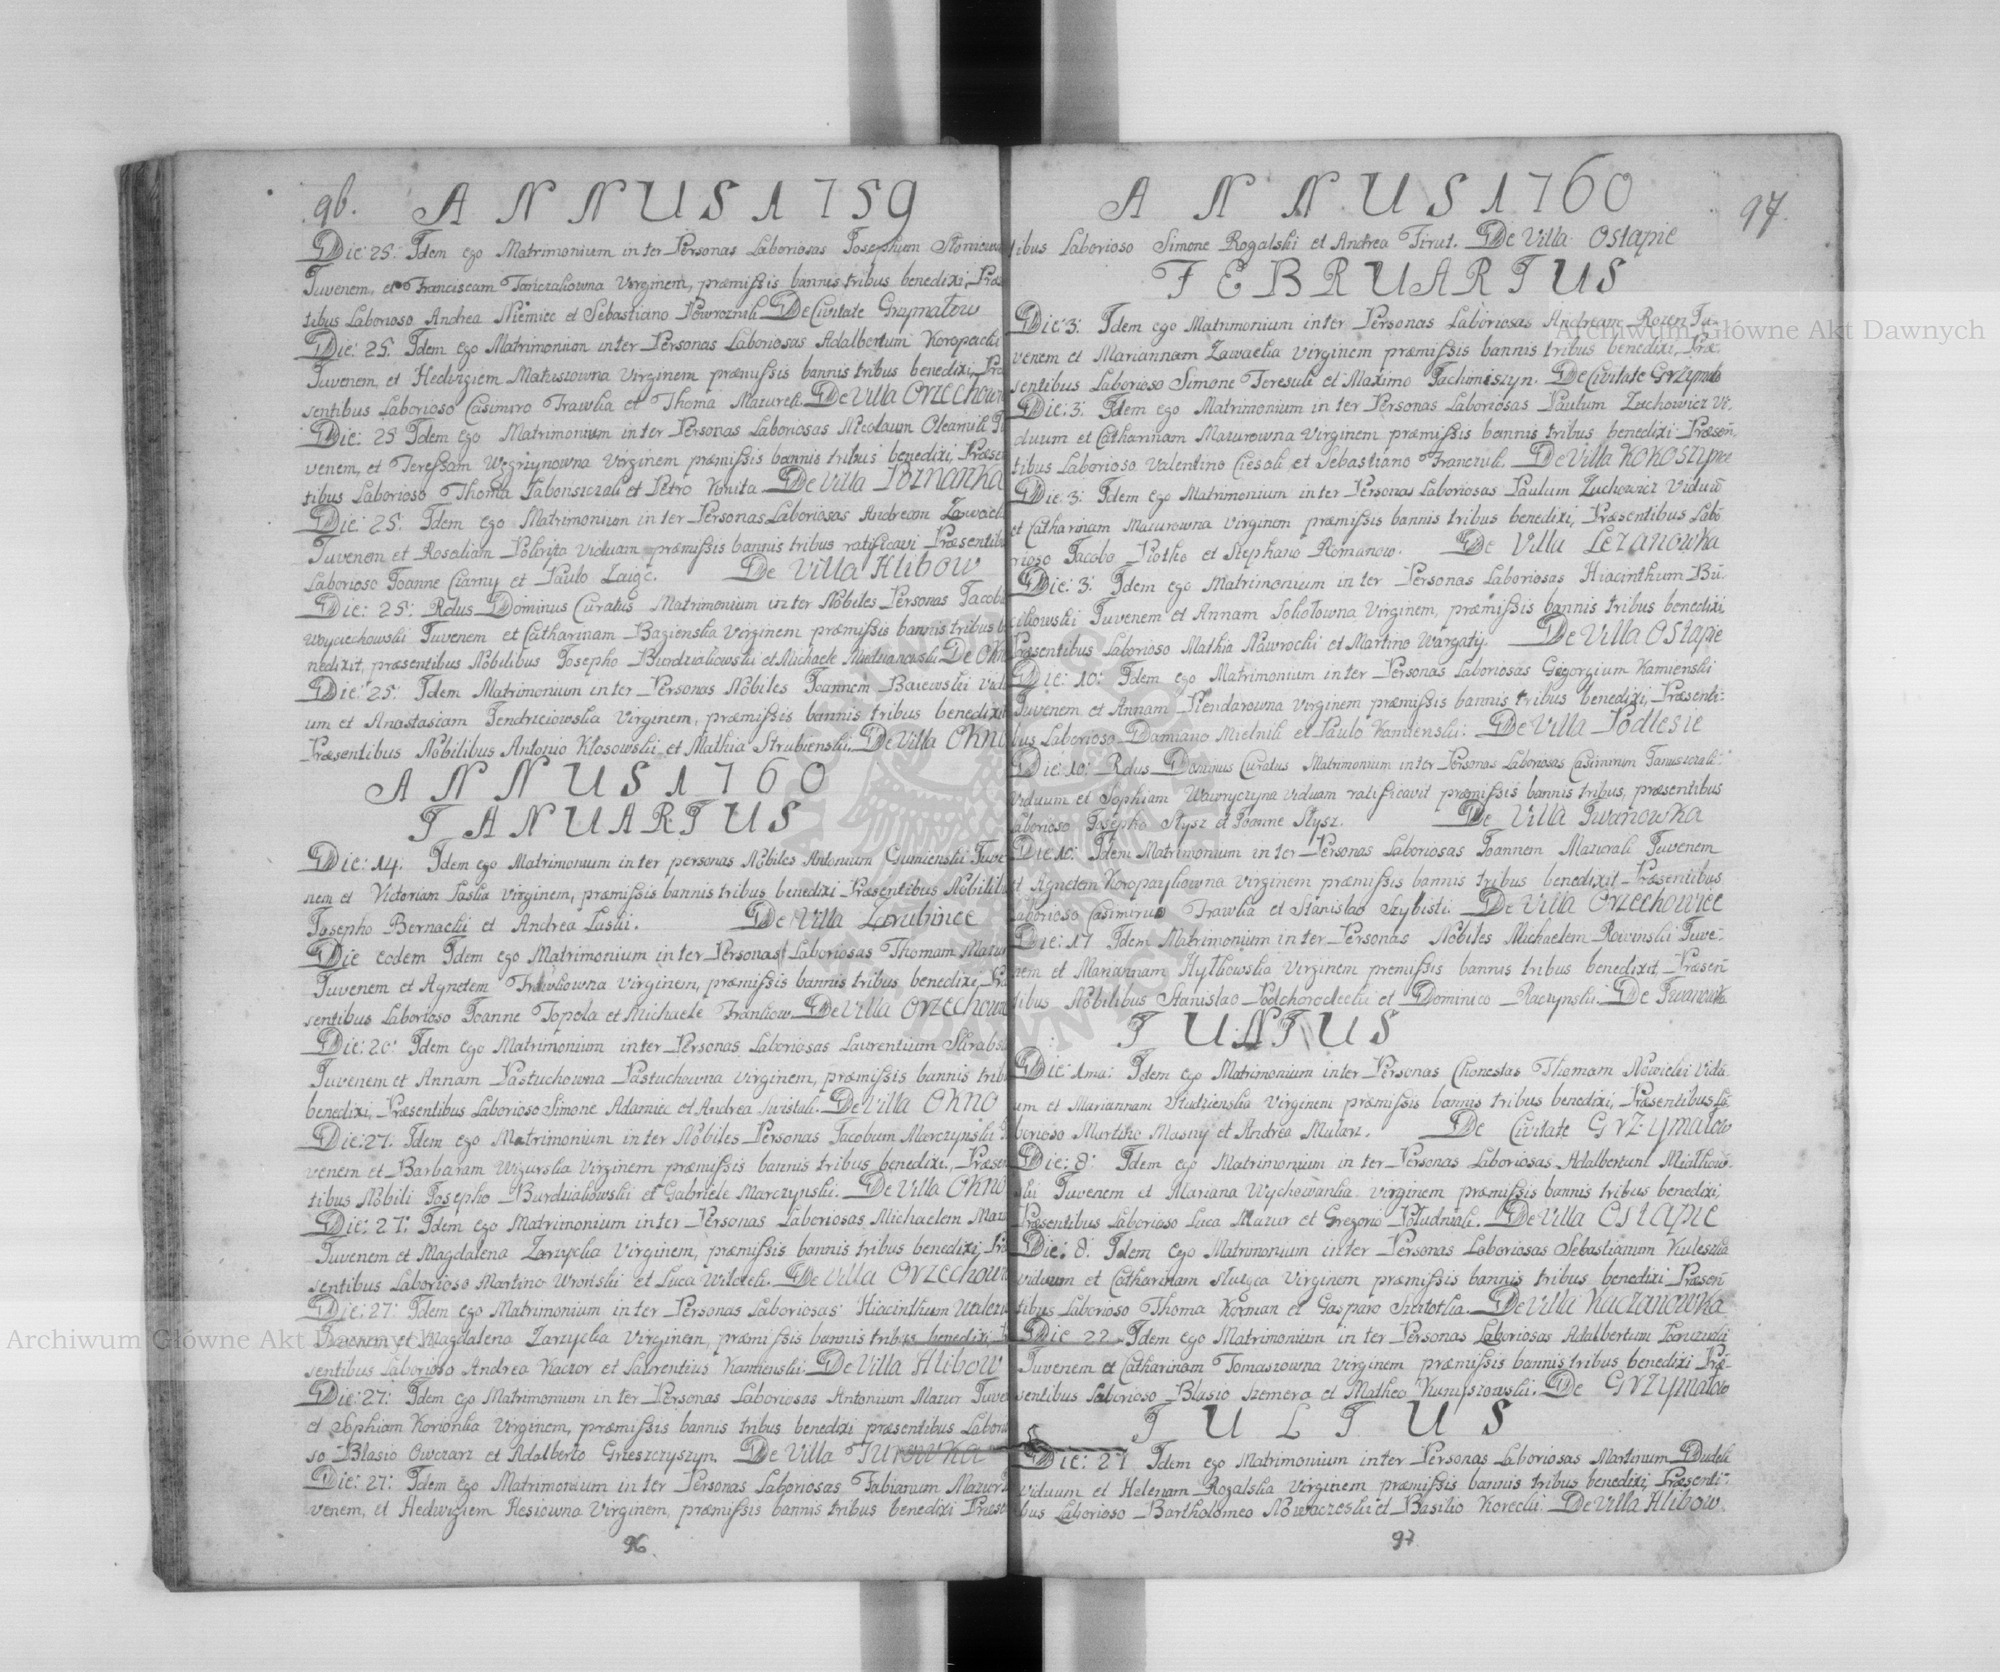 96. ANNUS 1759
Die 25: Idem ego Matrimonium inter Personas Laboriosas Josephum
Juvenem, et Franciscam Janczakowna Virginem, præmissis bannis tribus benedixi, Præ
tibus Laborioso Andrea Niemiec et Sebastiano Powroznik De Civitate Grzymałow
Die: 25: Idem Ego Matrimonium inter Personas Laboriosas Adalbertum Koropecki
Juvenem, et Hedvigiem Matuszowna Virginem præmissis bannis tribus benedixi, Præ
sentibus Laborioso Casimiro Trawka et Thoma Mazurek. De Villa Orzechow
Die: 25 Idem Ego Matrimonium inter Personas Laboriosas Nicolaum Olearnik Ju
venem, et Teressam Węgrzynowna Virginem præmissis bannis tribus benedixi, Præsen
tibus Laborioso Thoma et Petro Kunita De Villa Poznanka
Die: 25: Idem Ego Matrimonium inter Personas Laboriosas Andream
Juvenem et Rosaliam Viduam præmissis bannis tribus ratificavi Præsentibus
Laborioso Joanne Czarny et Paulo Zaigc. De Villa Hlibow
Die: 25: Rdus Dominus Curatus Matrimonium inter Nobiles Personas Jacobu
Woyciechowski Juvenem et Catharinam Bagienska Virginem præmissis bannis tribus be
nedixit, præsentibus Nobilibus Josepho Burdziakowski et Michaele De Okn
Die: 25: Idem Matrimonium inter Personas Nobiles Joannem Baiewski Vidu
um et Anastasiam Jendrzeiowska Virginem, præmissis bannis tribus benedixit
Præsentibus Nobilibus Antonio Kłosowski et Mathia Strubienski. De Villa Okno
ANNUS 1760
JANUARIUS
Die: 14: Idem ego Matrimonium inter personas Nobiles Antonium Czumienski Juve
nem et Victoriam Laska Virginem, præmissis bannis tribus benedixi Præsentibus Nobilibu
Josepho Bernacki et Andrea Laski. De Villa Zarubince
Die eodem Idem ego Matrimonium inter Personas Laboriosas Thomam Mazur
Juvenem et Agnetem Trawkowna Virginem, præmissis bannis tribus benedixi, Præ
sentibus Laborioso Joanne Topola et Michaele Frankow. De Villa Orzechow
Die: 20: Idem ego Matrimonium inter Personas Laboriosas Laurentium Skrabs
Juvenem et Annam Pastuchowna Pastuchowna Virginem, præmissis bannis trib
benedixi, Præsentibus Laborioso Simone Adamiec et Andrea Swistak. De Villa Okno
Die: 27: Idem ego Matrimonium inter Nobiles Personas Jacobum Marczynski Ju
venem et Barbaram Wizurska Virginem præmissis bannis tribus benedixi., Præsen
tibus Nobili Josepho Burdziakowski et Gabriele Marczynski. De Villa Okno
Die: 27: Idem ego Matrimonium inter Personas Laboriosas Michaelem Mazu
Juvenem et Magdalena Zarzycka Virginem, præmissis bannis tribus benedixi, Præ
sentibus Laborioso Martino Wronski et Luca Wilczek. De Villa Orzechow
Die: 27: Idem ego Matrimonium inter Personas Laboriosas Hiacinthum
Juvenem et Magdalena Zarzycka Virginem, præmissis bannis tribus benedixi,
sentibus Laborioso Andrea Kaczor et Laurentius Kamienski. De Villa Hlibow
Die: 27: Idem ego Matrimonium inter Personas Laboriosas Antonium Mazur Juve
et Sophiam Korionka Virginem, præmissis bannis tribus benedixi præsentibus Labori
so Blasio Owczarz et Adalberto Grzeszczyszyn. De Villa Turowka
Die: 27: Idem Ego Matrimonium inter Personas Laboriosas Fabianum Mazur Ju
venem, et Hedwigiem Hesiowna Virginem, præmissis bannis tribus benedixi Præsen
96
ANNUS 1760 97.
tibus Laborioso Simone Rogalski et Andrea Tirut. De Villa Ostapie
FEBRUARIUS
Die: 3: Idem ego Matrimonium inter Personas Laboriosas Andream Rozen Ju-
venem et Mariannam Zawacka Virginem præmissis bannis tribus benedixi, Præ-
sentibus Laborioso Simone Teresuk et Maximo Jachimiszyn. De Civitate Grzymało
Die: 3: Idem ego Matrimonium inter Personas Laboriosas Paulum Zuchowicz Vi-
duum et Catharinam Mazurowna Virginem præmissis bannis tribus benedixi Præsen-
tibus Laborioso Valentino Ciesak et Sebastiano Franczuk. De Villa Kokoszynce
Die: 3: Idem ego Matrimonium inter Personas Laboriosas Paulum Zuchowicz Viduū
et Catharinam Mazurowna Virginem præmissis bannis tribus benedixi, Præsentibus Labo
rioso Jacobo Piotko et Stephano Romanow. De Villa Lezanowka
Die: 3: Idem ego Matrimonium inter Personas Laboriosas Hiacinthum Bū-
cikowski Juvenem et Annam Sokołowna Virginem, præmissis bannis tribus benedixi
Præsentibus Laborioso Mathia Nawrocki et Martino Wargaty. De Villa Ostapie
Die: 10: Idem ego Matrimonium inter Personas Laboriosas Gregorgium Kamienski
Juvenem et Annam Piendarowna Virginem præmissis bannis tribus benedixi, Præsenti-
bus Laborioso Damiano Mielnik et Paulo Kamienski: De Villa Podlesie
Die: 10: Rdus Dominus Curatus Matrimonium inter Personas Laboriosas Casimirum Januszczak
Viduum et Sophiam Wawryczyna Viduam ratificavit præmissis bannis tribus, præsentibus
Laborioso Josepho Stysz et Joanne Stysz. De Villa Iwanowka
Die 10: Idem Matrimonium inter Personas Laboriosas Joannem Mazurak Juvenem
et Agnetem Koropaykowna Virginem præmissis bannis tribus benedixit Præsentibus
Laborioso Casimiruo Trawka et Stanislao Szybisti. De Villa Orzechowiec
Die: 17 Idem Matrimonium inter Personas Nobiles Michaelem Rowinski Juve-
nem et Mariannam Hytkowska Virginem premissis bannis tribus benedixit, Præsen
tibus Nobilibus Stanislao Podchorodecki et Dominico Raczynski. De Iwanowka
JUNIUS
Die: 1ma: Idem ego Matrimonium inter Personas Chonestas Thomam Nowicki Vidu-
um et Mariannam Studzienska Virginem præmissis bannis tribus benedixi, Præsentibus La-
borioso Martino Masny et Andrea Mularz. De Civitate Grzymałow
Die: 8: Idem ego Matrimonium inter Personas Laboriosas Adalbertum Miałkow-
ski Juvenem et Mariana Wychowanka Virginem præmissis bannis tribus benedixi,
Præsentibus Laborioso Luca Mazur et Gregorio Południak. De Villa Ostapie
Die: 8: Idem Ego Matrimonium inter Personas Laboriosas Sebastianum Kuleszka
Viduum et Catharinam Służąca Virginem præmissis bannis tribus benedixi Præsen
tibus Laborioso Thoma Korman et Gasparo De Villa Kaczanowka
Die 22 Idem ego Matrimonium inter Personas Laboriosas Adalbertum
Juvenem et Catharinam Tomaszowna Virginem præmissis bannis tribus benedixi Præ-
sentibus Laborioso Blasio Szemera et Matheo Kunyszowski. De Grzymałow
JULIUS
Die: 27 Idem ego Matrimonium inter Personas Laboriosas Martinum Dudek
Viduum et Helenam Rogalska Virginem præmissis bannis tribus benedixi, Præsenti-
bus Laborioso Bartholomeo Nowaczeski et Basilio Korecki De Villa Hlibow.
97
Archiwum Główne Akt Dawnych
Archiwum Główne Akt Dawnych